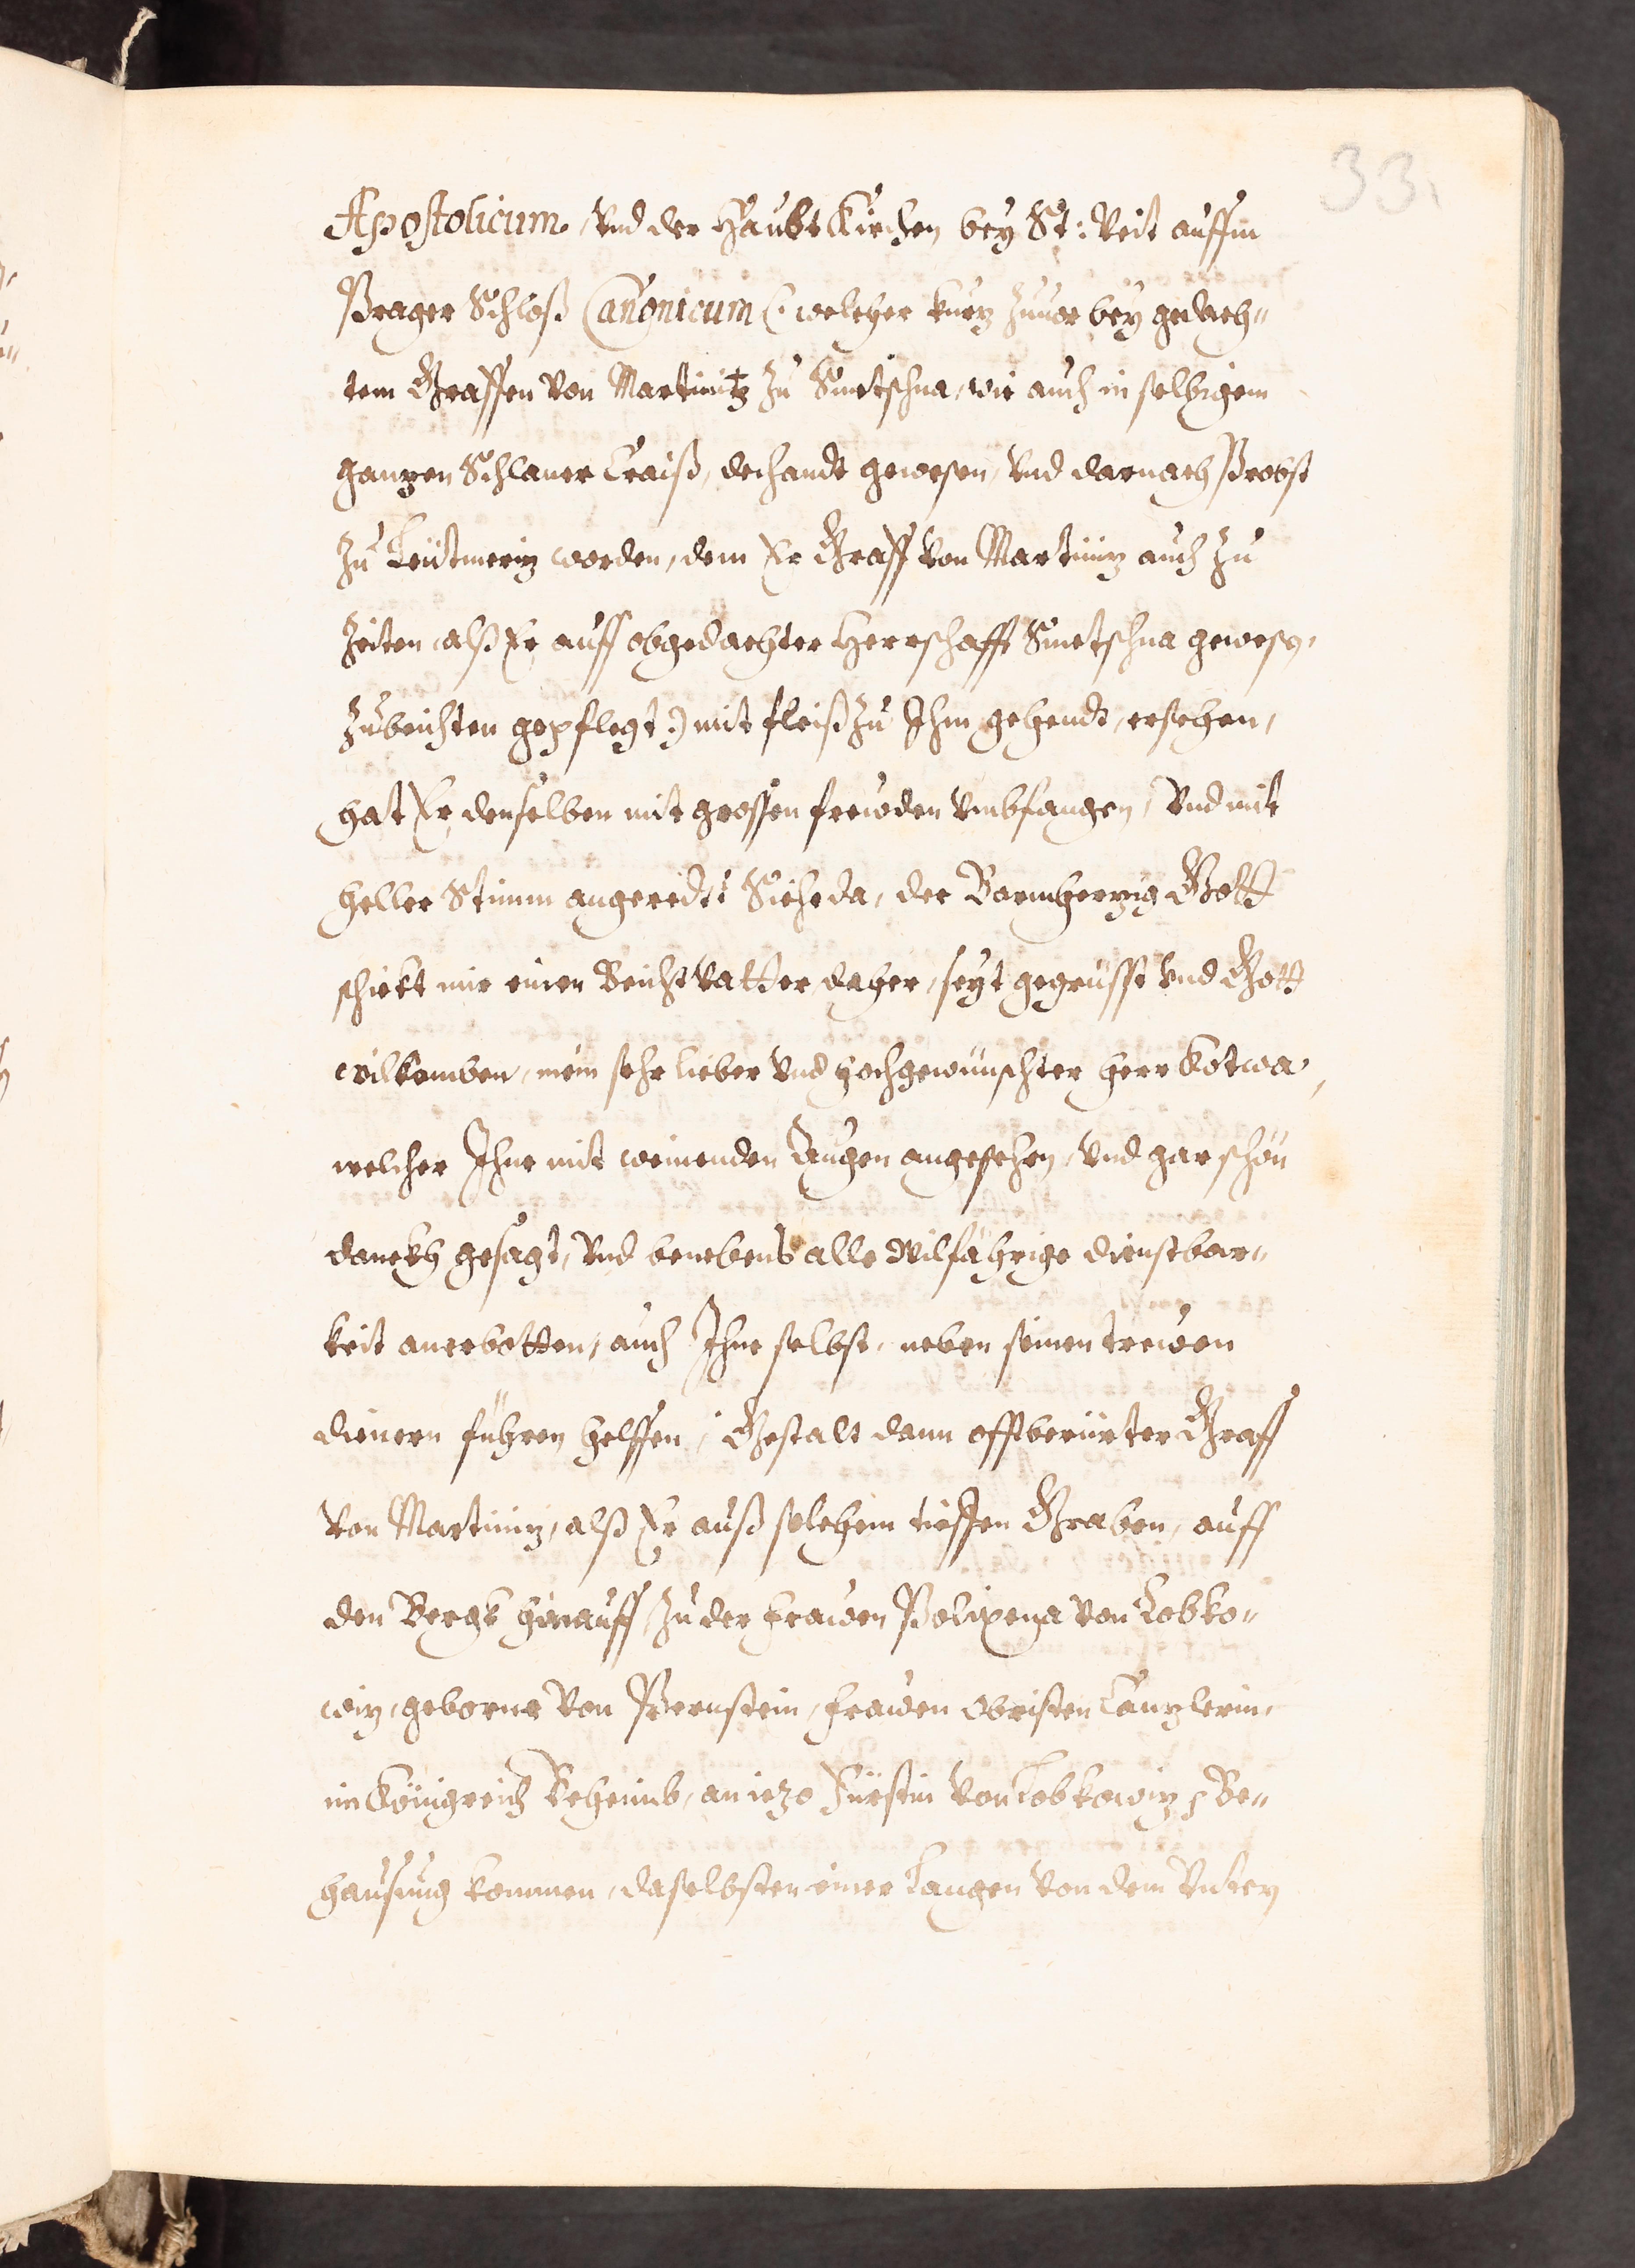 33.
Apostolicum, Vnd der Haubt Kirchen bey St: Veit auffm
Prager Schloß Canonicum (: welcher kurtz zuuor bey gedach-
tem Graffen Von Martinitz zu Smetschna, wie auch in selbigem
gantzen Schlaner Craiß, dechandt gewesen, Vnd darnach Probst
zu Leütmeritz worden, dem Er Graff Von Martinitz auch zu
Zeiten, alß Er auff obgedachter Herrschafft Smetschna gewesen,
zubeichten gepflegt:) mit fleiß zu Ihm gehendt, ersehen,
hat Er denselben mit grossen frewden Vmbfangen, Vnd mit
heller Stimm angeredt: Siehe da, der Barmhertzig Gott
schickt mir einen Beicht Vatter daher, seyt gegrüsst Vnd Gott
wilkomben, mein sehr lieber Vnd hochgewünschter Herr Kotwa,
welcher Ihne mit weinenden Augen angesehen, Vnd gar schön
danckh gesagt, Vnd benebens alle Wilfährige dienstbar-
keit anerbotten, auch Ihne selbst, neben seinen trewen
dienern führen helffen, Gestalt dann offtberürter Graff
Von Martinitz, alß Er auß solchem tieffen Graben, auff
den Bergk hinauff, zu der Frawen Polixena Von Lobko-
witz, geborne Von Pernstein, Frawen Obristen Cantzlerin,
im Königreich Beheimb, an iezo Fürstin Von Lobkowitz, Be-
hausung kommen, daselbsten einer Langen Von dem Vntern